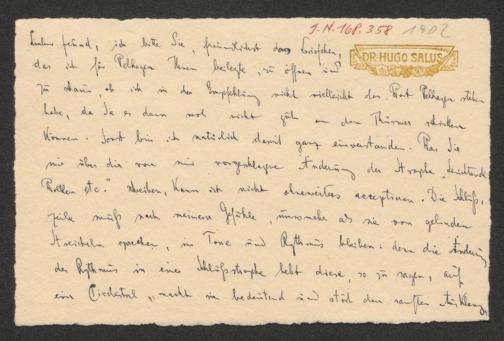 J.N. 168.358 1902
DR. HUGO SALUS
Lieber Freund, ich bitte Sie, freundlichst das Briefchen,
das ich für Pelkagen Ihnen beilegte, zu öffnen und
zu schaun, ob ich in der Empfehlung nicht vielleicht das Wort stehen
habe, da Sie es dann wol nicht gut an den schicken
können. Sonst bin ich natürlich damit ganz einverstanden. Was Sie
mir über die von mir vorgeschlagene Änderung der Strophe
etc." schreiben, kann ich nicht ohneweiters acceptieren. Die Schluß,
zeile muß nach meinem Gefühle, umsomehr als sie von gelindem
Streicheln sprechen, in Tone und Rythmus bleiben: denn die Änderung
des Rythmus in einer Schlußstrophe hebt diese, so zu sagen, auf
ein Piedestal, macht sie bedeutend und stört den sanften Ausklang,